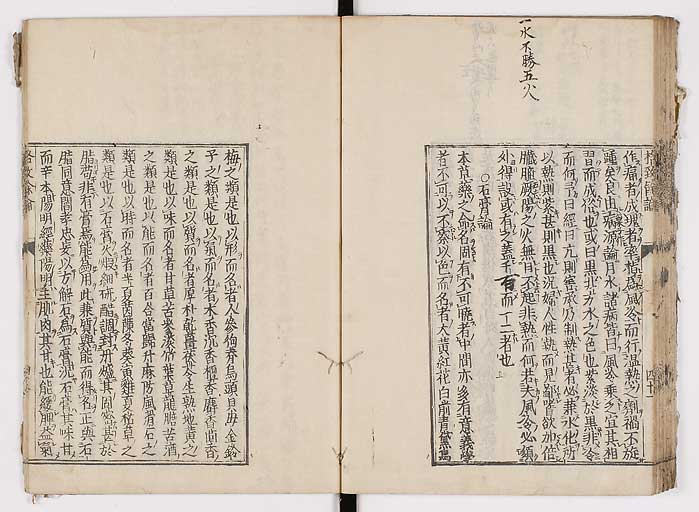 一水不勝五火
格致餘論
作痛者成塊者率指為風冷而行温熱之劑禍不旋
踵矣良由病源論月水諸病皆曰風冷乘之宜其相
習而成俗也或曰黑北方水之色也紫淡於黑非冷
而何予曰經曰亢則害承乃制熱甚者必兼水化所
以熱則紫甚則黑也況婦人性執而見鄙嗜欲加倍
臟腑厥陽之火無日不起非熱而何若夫風冷必須
外得設或有之蓋千百而一二者也
○石膏論
本草藥之命名固有不可曉者中間亦多有意義學
者不可以不察以色而名者大黃紅花白前青黛烏
梅之類是也以形而名者人參狗脊烏頭貝母金鈴
子之類是也以氣而名者木香沉香檀香麝香茴香
之類是也以質而名者厚朴乾薑茯苓生熟地黃之
類是也以味而名者甘草苦參淡竹葉草龍膽苦酒
之類是也以能而名者百合當歸升麻防風滑石之
類是也以時而名者半夏茵陳冬葵寅雞夏枯草之
類是也以石膏火煅細研醋調封丹爐其固密甚於
脂苟非有膏焉能為用此兼質與能而得名正與石
脂同意閻孝忠妄以方解石為石膏況石膏其味甘
而辛本陽明經藥陽明主肌肉其甘也能緩脾益氣
格致餘論